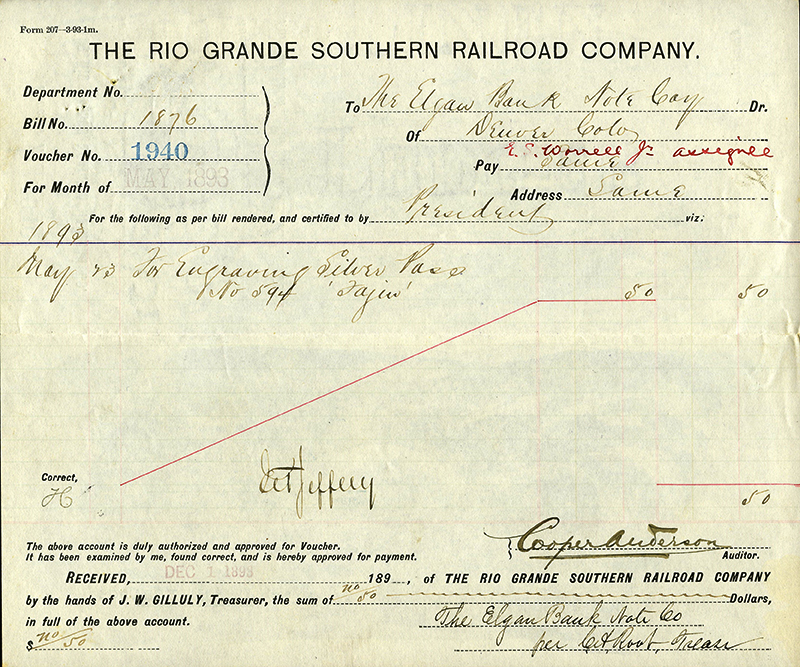 Form 207—3-93-1m.
THE RIO GRANDE SOUTHERN RAILROAD COMPANY.
Department No.
Bill No. 1876
Voucher No. 1940
For Month of MAY 1893
To The Elgan Bank Note Coy Dr.
Of Denver Colo
E. S. Worrell Jr assignee
Pay Same
Address Same
For the following as per bill rendered, and certified to by President viz:
1893
May 23 For Engraving Silver Pass
No 594 50 50
Correct,
H
Jeffery
50
The above account is duly authorized and approved for Voucher.
It has been examined by me, found correct, and is hereby approved for payment.
Cooper Anderson
Auditor.
RECEIVED, DEC 1 1893 189 , of THE RIO GRANDE SOUTHERN RAILROAD COMPANY
by the hands of J. W. GILLULY, Treasurer, the sum of no/50 Dollars,
in full of the above account.
The Elgan Bank Note Co
$ no/50
per Root, Treas